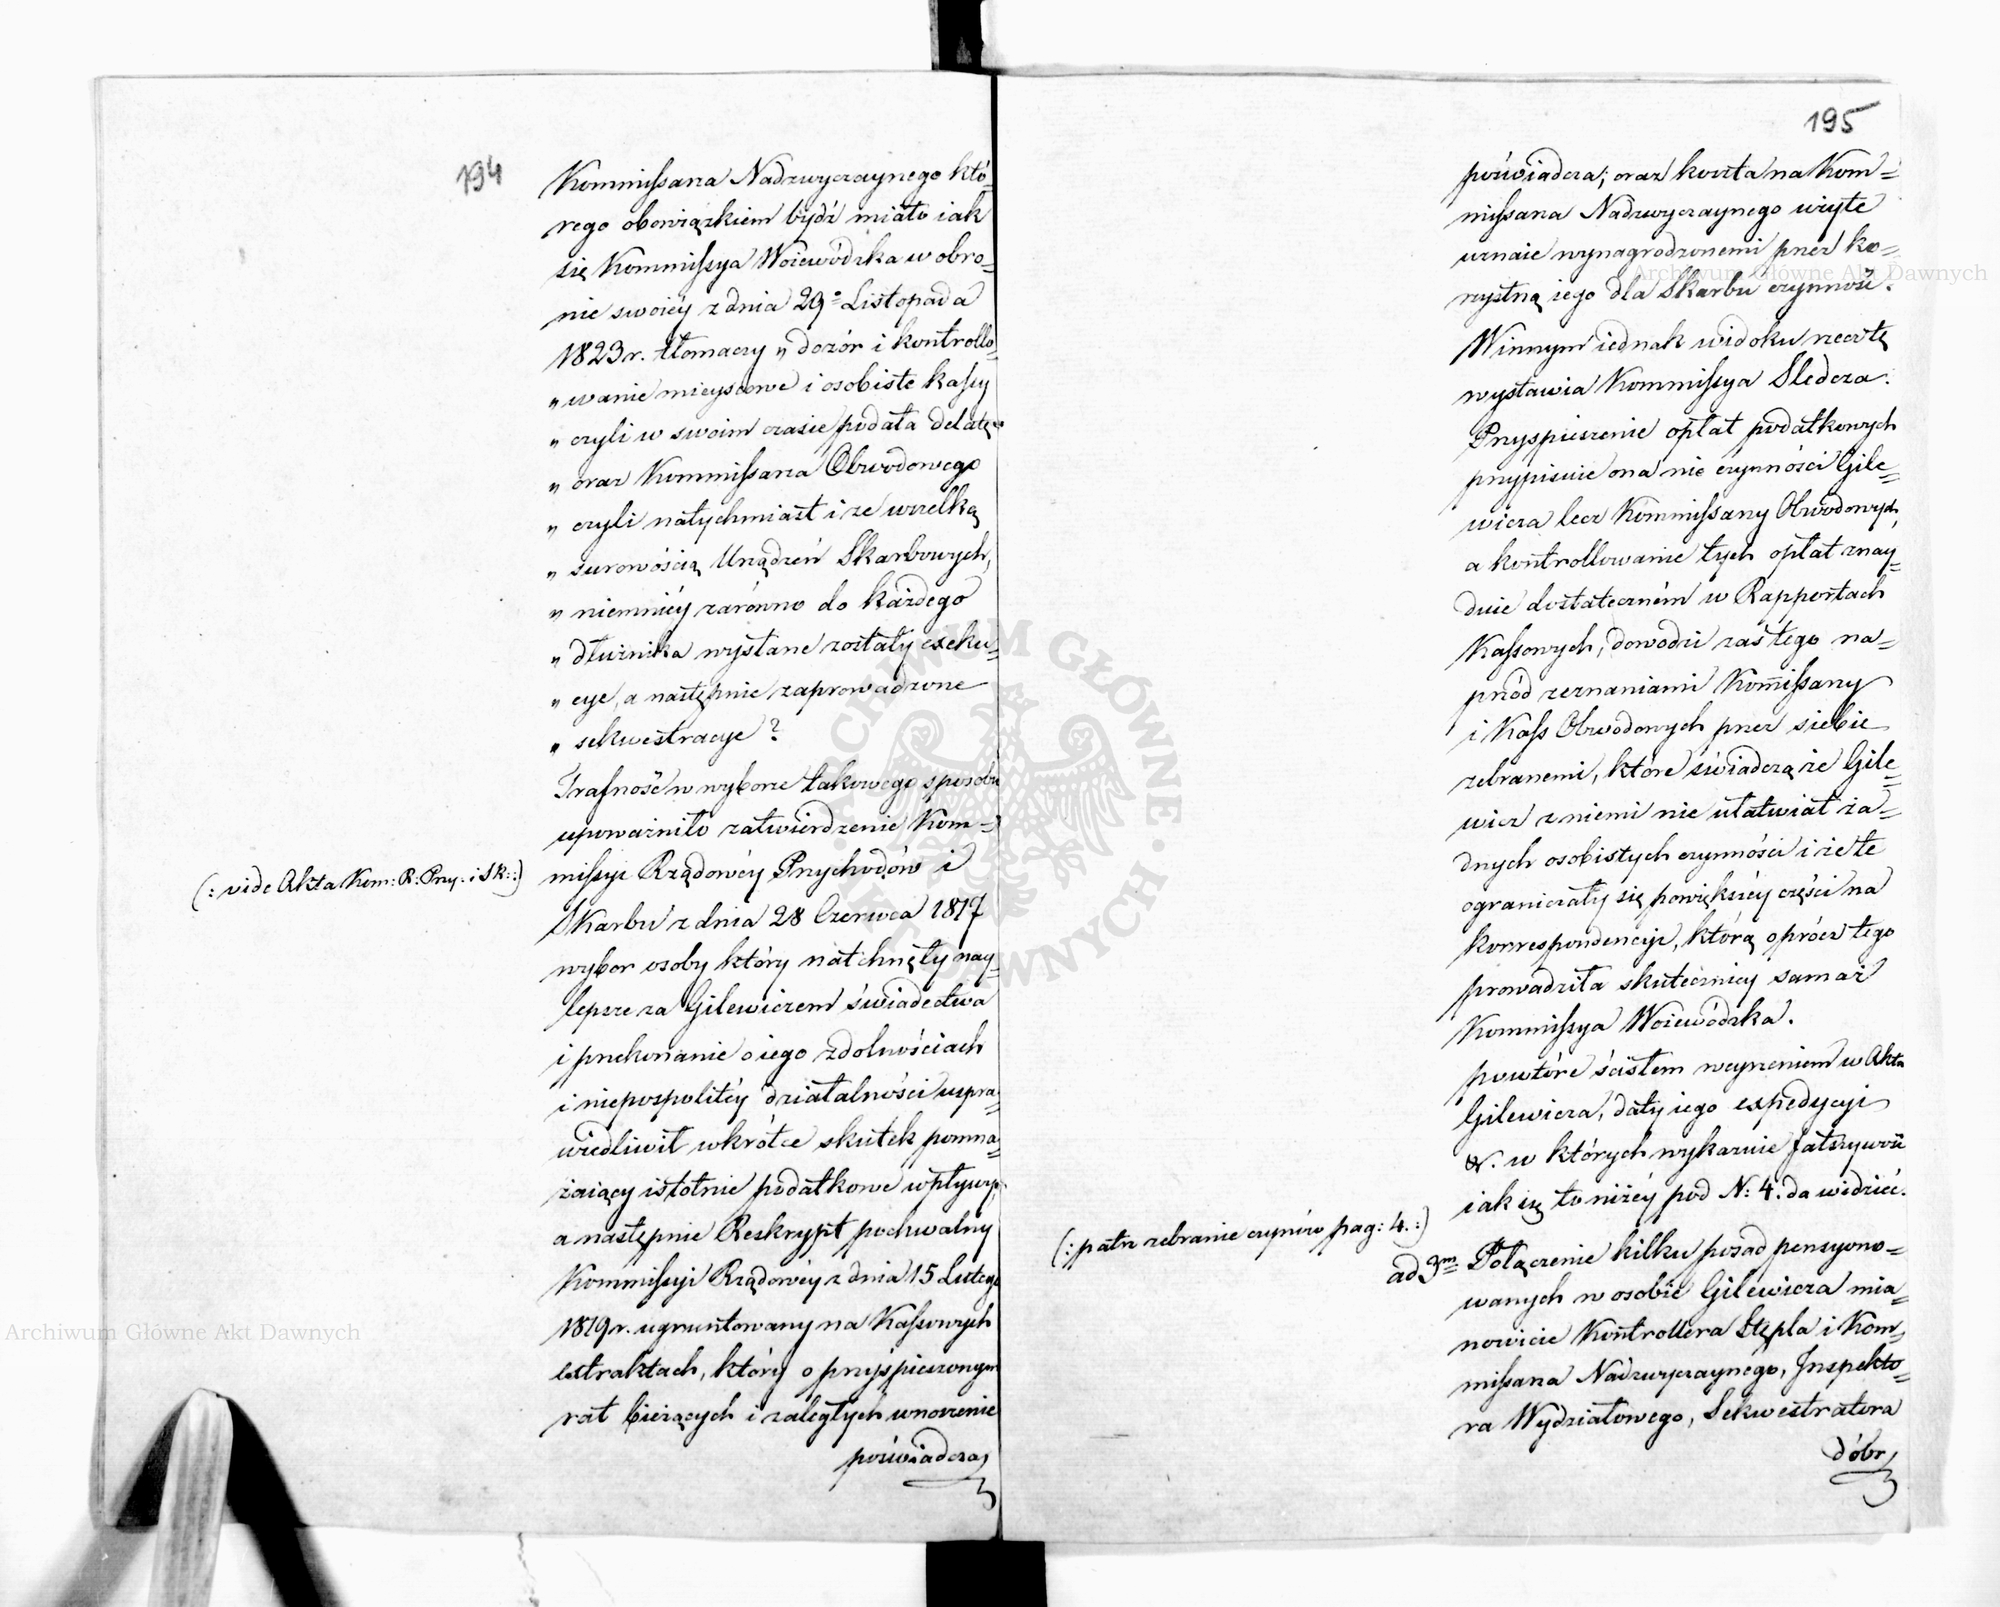 194
Kommissarza Nadzwyczaynego któ=
rego obowiązkiem bydź miało iak
się Kommissya Woiewódzka w obro=
nie swoiéy z dnia 29° Listopada
1823 r. tłomaczy „ dozór i kontrollo=
„ wanie mieyscowe i osobiste kassy
„ czyli w swoim czasie podała delatę
„ oraz Kommissarza Obwodowego
„ czyli natychmiast i ze wszelką
„ surowością Urządzeń Skarbowych,
„ niemniéy zarówno do każdego
„ dłużnika wysłane zostały exeku=
„ cye, a następnie zaprowadzone
„ sekwestracye?
Trafność w wyborze takowego sposobu
upoważniło zatwierdzenie Kom=
(: vide Akta Kom: R: Przy. i Sk: :)
missyi Rządowéy Przychodów i
Skarbu z dnia 28 Czerwca 1817
wybor osoby który natchnęły nay=
lepsze za Gilewiczem świadectwa
i przekonanie o iego zdolnościach
i niepospolitéy działalności uspra=
wiedliwił wkrótce skutek pomna=
żaiący istotnie podatkowe wpływy,
a następnie Reskrypt pochwalny
Kommissyi Rządowéy z dnia 15 Lutego
1819 r. ugruntowany na Kassowych
extraktach, który o przyspieszonym
rat bieżących i zaległych wnoszenie
poświadcza,
195
poświadcza; oraz koszta na Kom=
missarza Nadzwyczaynego użyte
uznaie wynagrodzonemi przez ko=
rzystną iego dla Skarbu czynność.
W innym iednak widoku rzecz tę
wystawia Kommissya Sledcza.
Przyspieszenie opłat podatkowych
przypisuie ona nie czynności Gile=
wicza lecz Kommissarzy Obwodowych,
a kontrollowanie tych opłat znay=
duie dostateczném w Rapportach
Kassowych, dowodzi zaś tego na=
przód zeznaniami Kom̃issarzy
i Kass Obwodowych przez siebie
zebranemi, które świadczą że Gile=
wicz z niemi nie ułatwiał ża=
dnych osobistych czynności i że te
ograniczały się powiększéy części na
korrespondencyi, którą oprócz tego
prowadziła skuteczniéy samaż
Kommissya Woiewódzka.
powtóre ścisłem weyrzeniem w Akta
Gilewicza, daty iego expedycyi
&. w których wykazuie fałszywość
iak się to niżéy pod N: 4. da widzieć.
(: patrz zebranie czynów pag: 4. :)
ad 3m Połączenie kilku posad pensyono=
wanych w osobie Gilewicza mia=
nowicie Kontrollera Stępla i Kom=
missarza Nadzwyczaynego, Inspekto=
ra Wydziałowego, Sekwestratora
dóbr,
ARCHIWUM GŁÓWNE AKT DAWNYCH
Archiwum Główne Akt Dawnych
Archiwum Główne Akt Dawnych